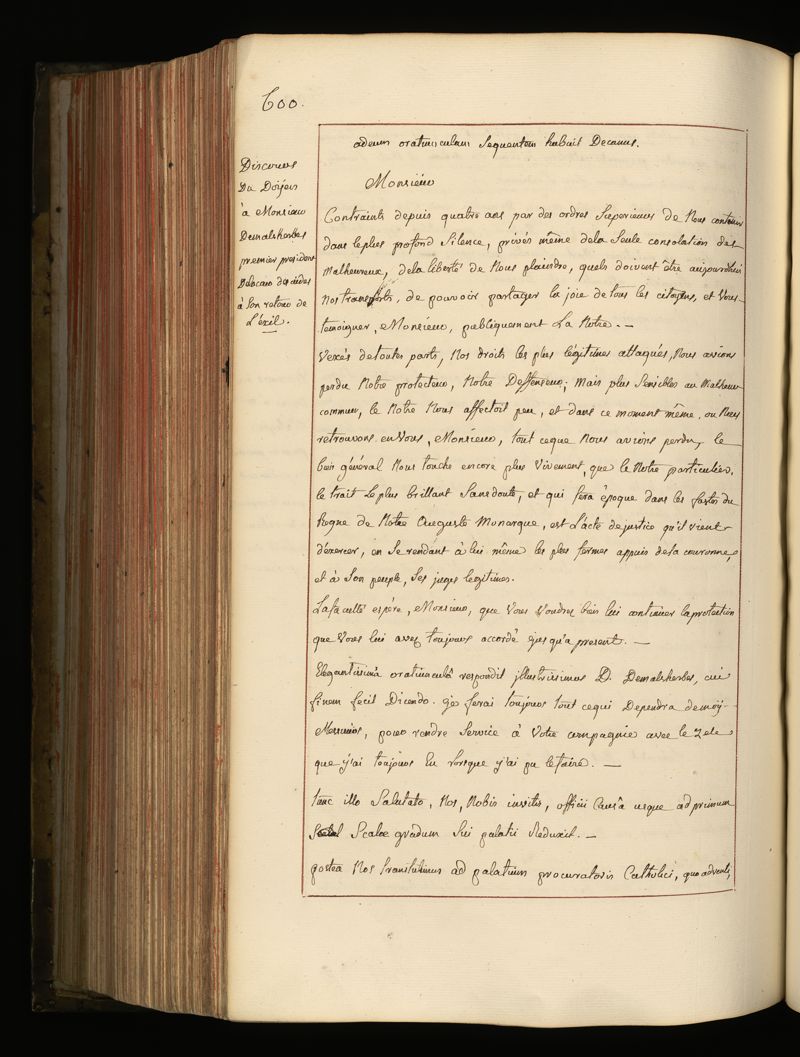 600.
Discours
Du Doÿen
à Monsieur
Demalsherbes
premier president
Delacour des aides
à Son retour de
L'éxil.
adeum oratiunculam Sequentem habuit Decanus.
Monsieur
Contraints depuis quatre ans par des ordres Superieurs de Nous contenir
dans leplus profond Silence, privés même dela Seule consolation des
Malheureux, dela liberté de Nous plaindre, quels doivent être aujourdhui
Nos transports, de pouvoir partager la joie de tous les citoÿens, et Vous
temoigner, Monsieur, publiquement La Notre. —
Vexés detoutes parts, Nos droits les plus légitimes attaqués, Nous avions
perdu Notre protecteur, Notre Deffenseur; Mais plus Sensibles au Malheur
commun, le Notre Nous affectoit peu, et dans ce moment même, ou Nous
retrouvons en Vous, Monsieur, tout ceque Nous avions perdu, le
bien général Nous touche encore plus Vivement, que le Notre particulier.
le trait Le plus brillant Sans doute, et qui fera époque dans les fastes du
Regne de Notre Auguste Monarque, est L'acte de justice qu'il vient
d'éxercer, en Se rendant à lui même les plus fermes appuis dela couronne,
et à Son peuple, Ses juges legitimes.
La faculté espère, Monsieur, que Vous Voudrez bien lui continuer la protection
que Vous lui avez toujours accordé jusqu'a present. —
Elegantissimâ oratiunculâ respondit jllustrissimus D. Demalsherbes, cui
finem fecit Dicendo. je ferai toujours tout cequi Dependra demoÿ
Messieurs, pour rendre Service à Votre compagnie avec le zele
que j'ai toujours Eu lorsque j'ai pu lefaire. —
tunc illo Salutato, Nos, Nobis invitis, officii Causâ usque ad primum
Scalæ gradum Sui palatii Reduxit. —
postea Nos transtulimus ad palatium procuratoris Catholici, quo adventi,